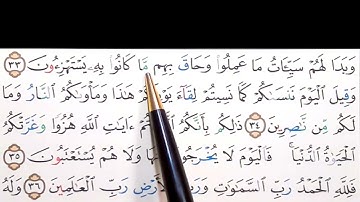 وَبَدَا لَهُمْ سَيِّـَٔاتُ مَا عَمِلُوا۟ وَحَاقَ بِهِم مَّا كَانُوا۟ بِهِۦ يَسْتَهْزِءُونَ ٣٣
وَقِيلَ ٱلْيَوْمَ نَنسَىٰكُمْ كَمَا نَسِيتُمْ لِقَآءَ هَٰذَا وَمَأْوَىٰكُمُ ٱلنَّارُ وَمَا
لَكُم مِّن نَّٰصِرِينَ ٣٤ ذَٰلِكُم بِأَنَّكُمُ ءَايَٰتِ ٱللَّهِ هُزُوًا وَغَرَّتْكُمُ
ٱلْحَيَوٰةُ ٱلدُّنْيَا ۚ فَٱلْيَوْمَ لَا وَلَا هُمْ يُسْتَعْتَبُونَ ٣٥
فَلِلَّهِ ٱلْحَمْدُ رَبِّ ٱلسَّمَٰوَٰتِ ٱلْأَرْضِ رَبِّ ٱلْعَٰلَمِينَ ٣٦ وَلَهُ